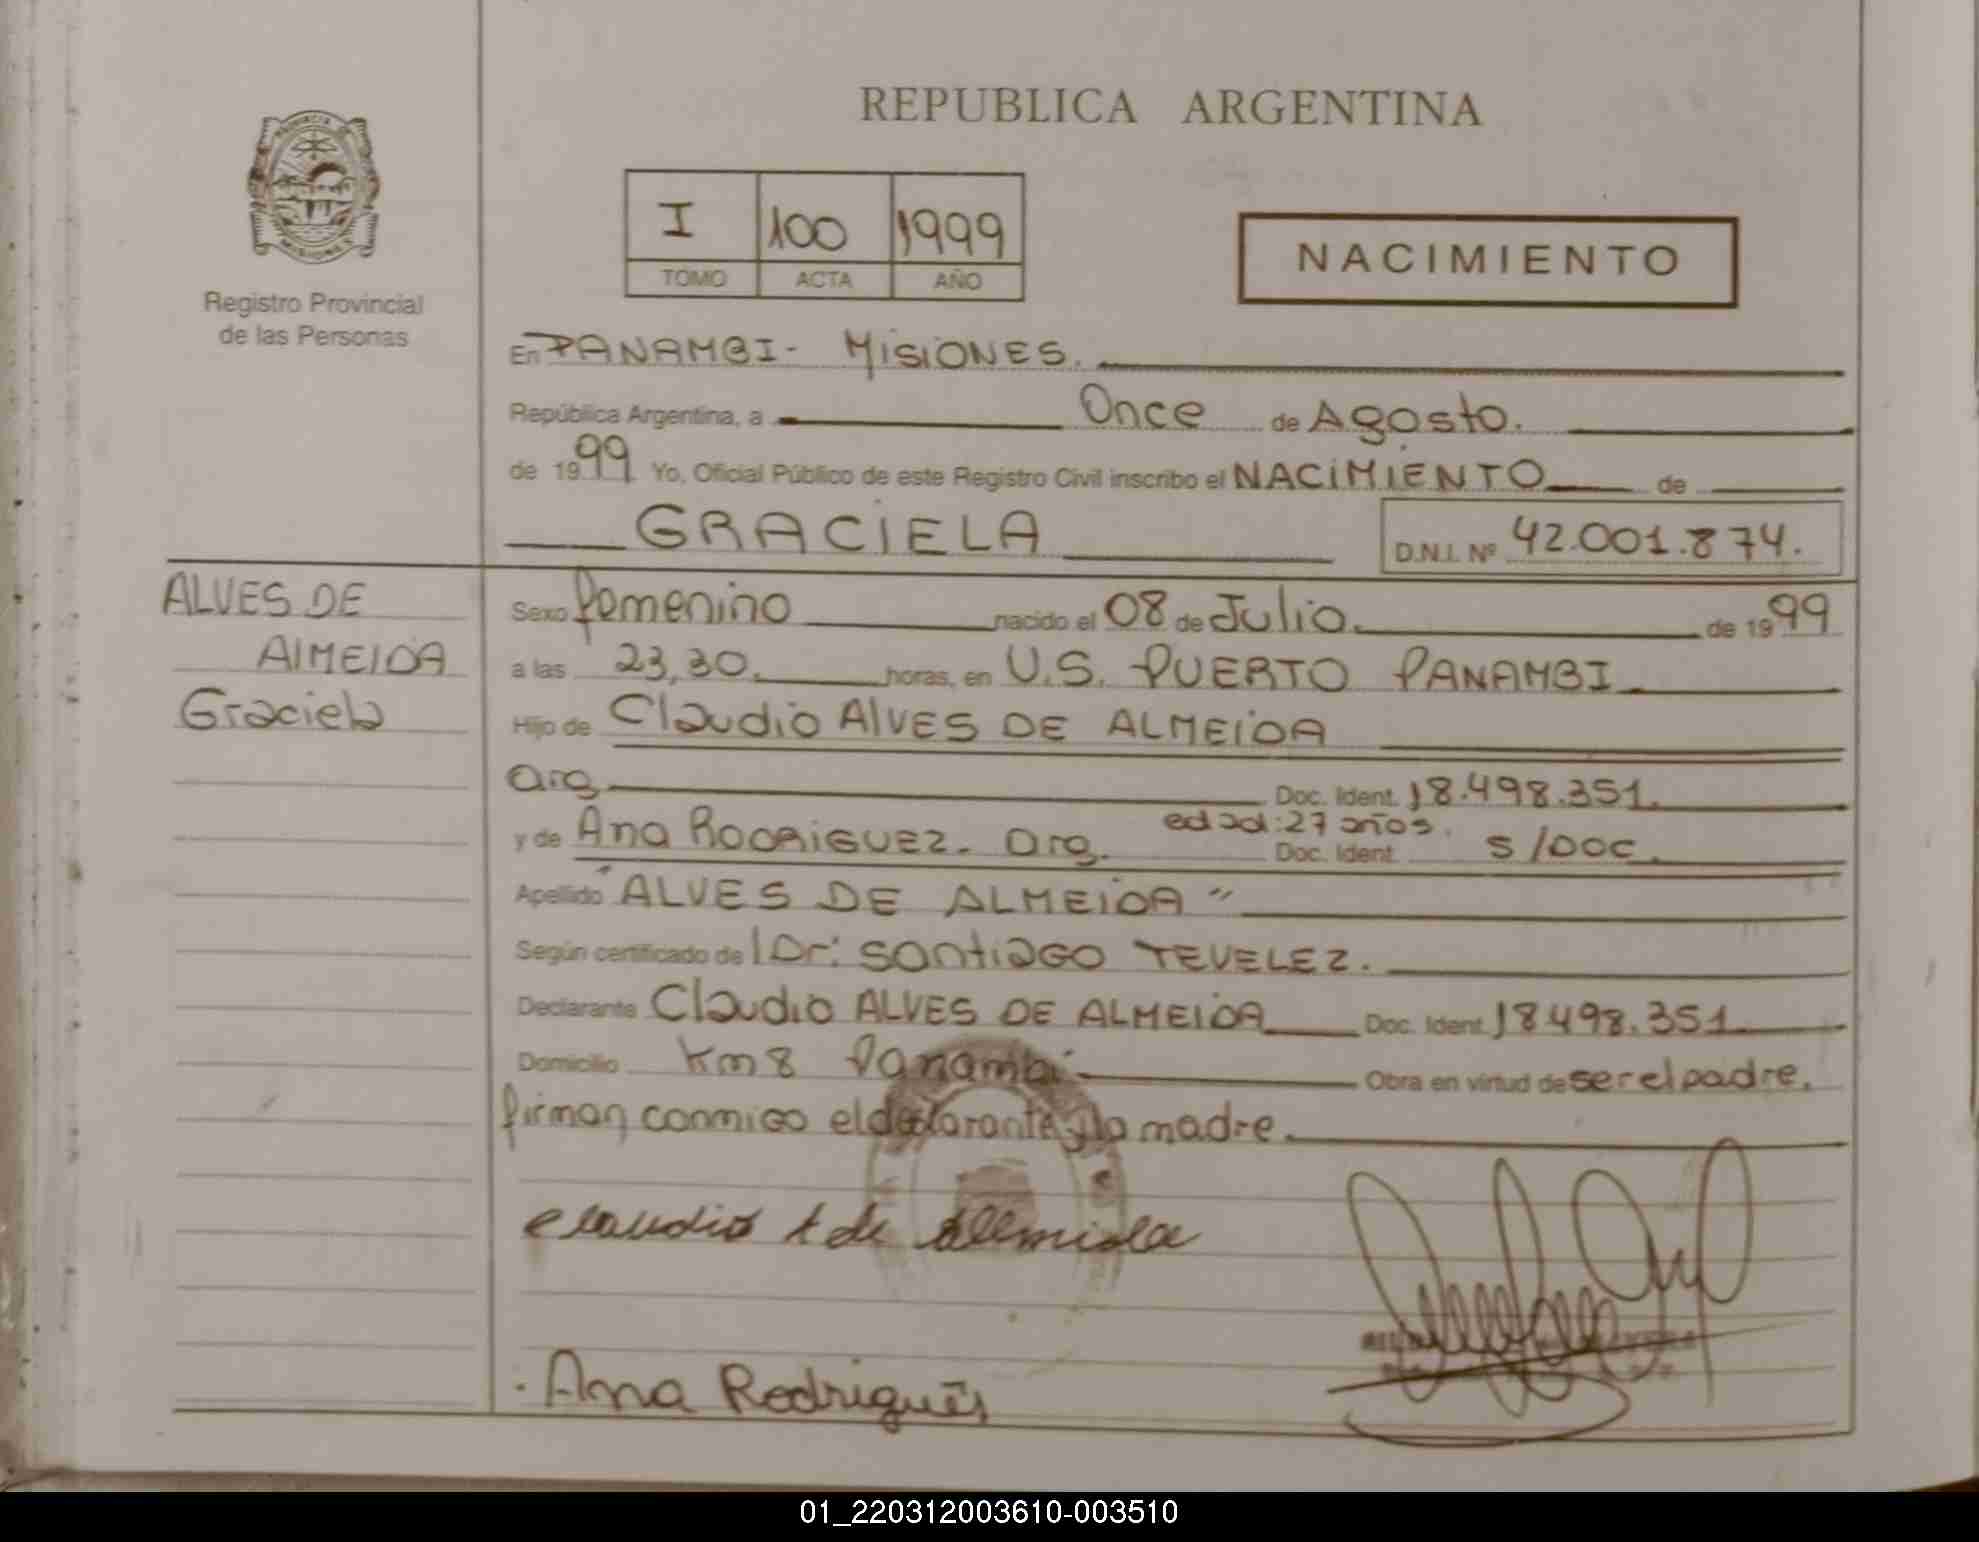 REPUBLICA ARGENTINA
PROVINCIA DE
MISIONES
Registro Provincial
de las Personas
I 100 1999
TOMO ACTA AÑO
NACIMIENTO
En PANAMBI - MISIONES.
República Argentina, a Once de Agosto.
de 1999 Yo, Oficial Público de este Registro Civil inscribo el NACIMIENTO de
GRACIELA
D.N.I. Nº 42.001.874.
ALVES DE
ALMEIDA
Graciela
Sexo femenino nacido el 08 de Julio. de 1999
a las 23,30. horas, en U.S. PUERTO PANAMBI
Hijo de Claudio ALVES DE ALMEIDA
arg Doc. Ident. 18.498.351.
edad: 27 años.
y de Ana RODRIGUEZ. arg. Doc. Ident. S/DOC.
Apellido "ALVES DE ALMEIDA"
Según certificado de Dr: SANTIAGO TEVELEZ.
Declarante Claudio ALVES DE ALMEIDA Doc. Ident. 18498.351
Domicilio Km 8 Panambi Obra en virtud de ser el padre.
firman conmigo el declarante y la madre.
claudio A de Alemida
Ana Rodriguês
01_220312003610-003510